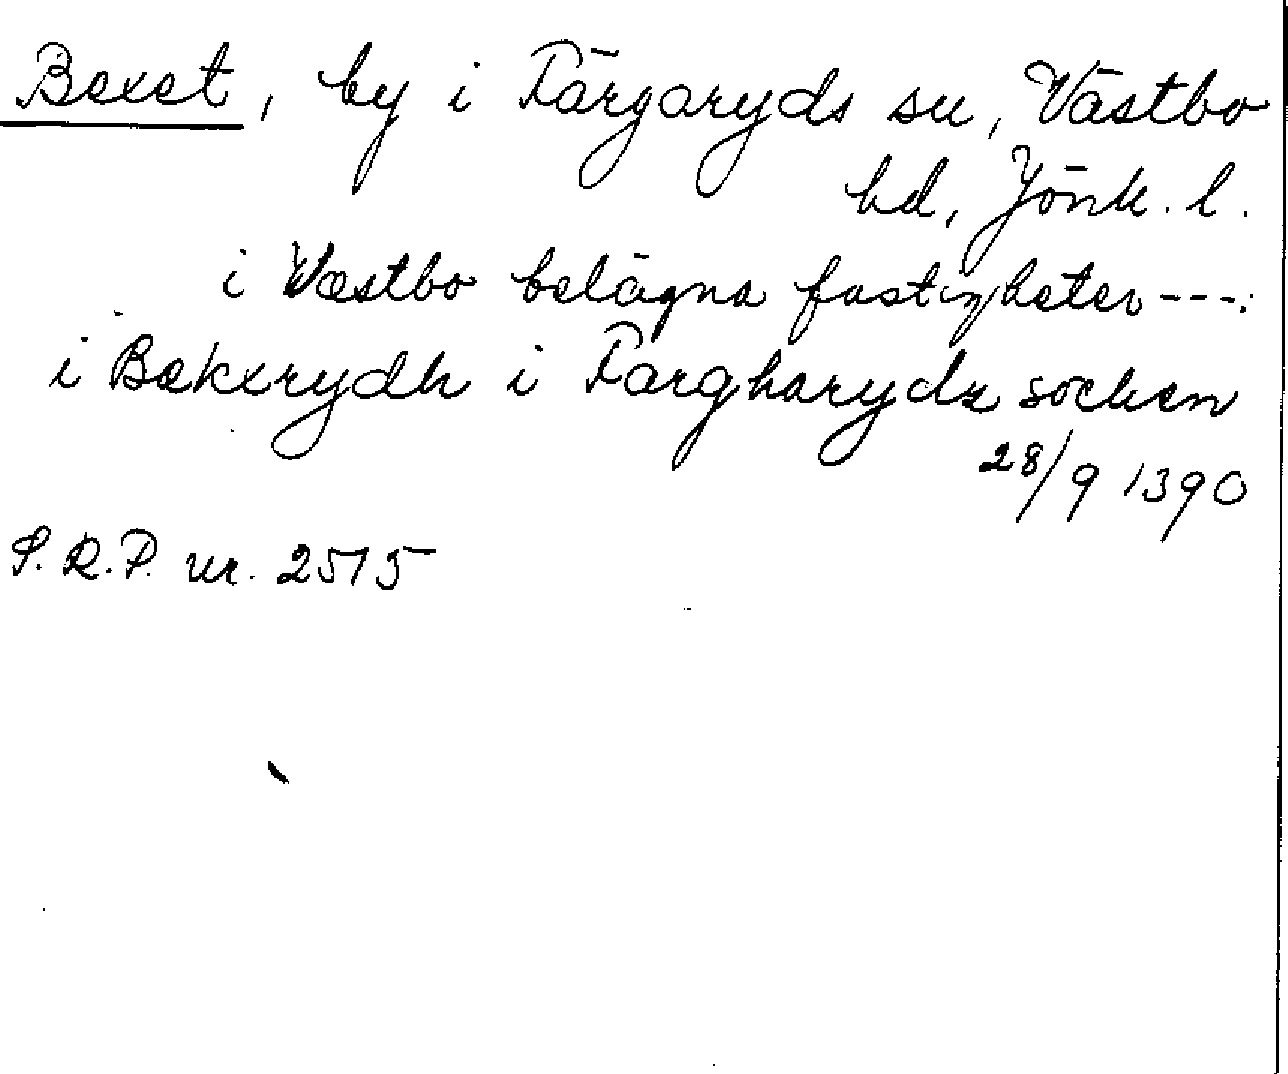 Bexet, by i Färgaryds sn, Västbo
hd, Jönk. l.
i Væstbo belägna fastigheter ---.
i Bækxrydh i Fargharydz socken
28/9 1390
S.R.P. nr. 2515